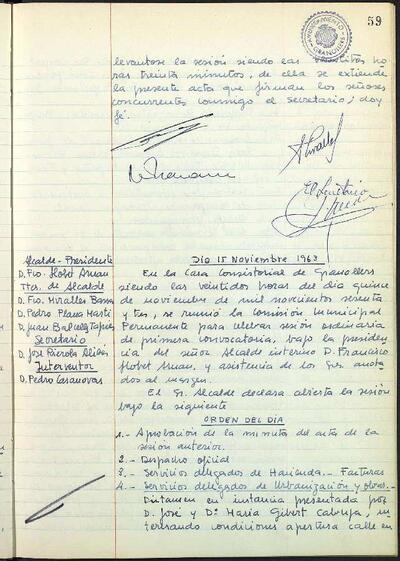 59
AYUNTAMIENTO
GRANOLLERS
levantose la sesión siendo las veintitres ho
ras treinta minutos, de ella se extiende
la presente acta que firman los señores
concurrentes conmigo el Secretario; doy
fé.
El Secretario
Alcalde-Presidente
D. Fco. Llobet Arnan
Ttes. de Alcalde
D. Fco. Miralles Bassa
D. Pedro Plana Martí
D. Juan
Secretario
D. José
Interventor
D. Pedro Casanovas
Día 15 Noviembre 1963
En la Casa Consistorial de Granollers
siendo las veintidos horas del día quince
de noviembre de mil novecientos sesenta
y tres, se reunió la Comisión Municipal
Permanente para celebrar sesión ordinaria
de primera convocatoria, bajo la presiden
cia del señor Alcalde interino D. Francisco
Llobet Arnan, y asistencia de los Sres. anota
dos al margen.
El Sr. Alcalde declara abierta la sesión
bajo la siguiente
ORDEN DEL DIA
1.- Aprobación de la minuta del acta de la
sesión anterior.
2.- Despacho oficial
3.- Servicios delegados de Hacienda. - Facturas
4.- Servicios delegados de Urbanización y obras.-
Dictamen en instancia presentada por
D. José y Dª María Gibert in
teresando condiciones apertura calle en